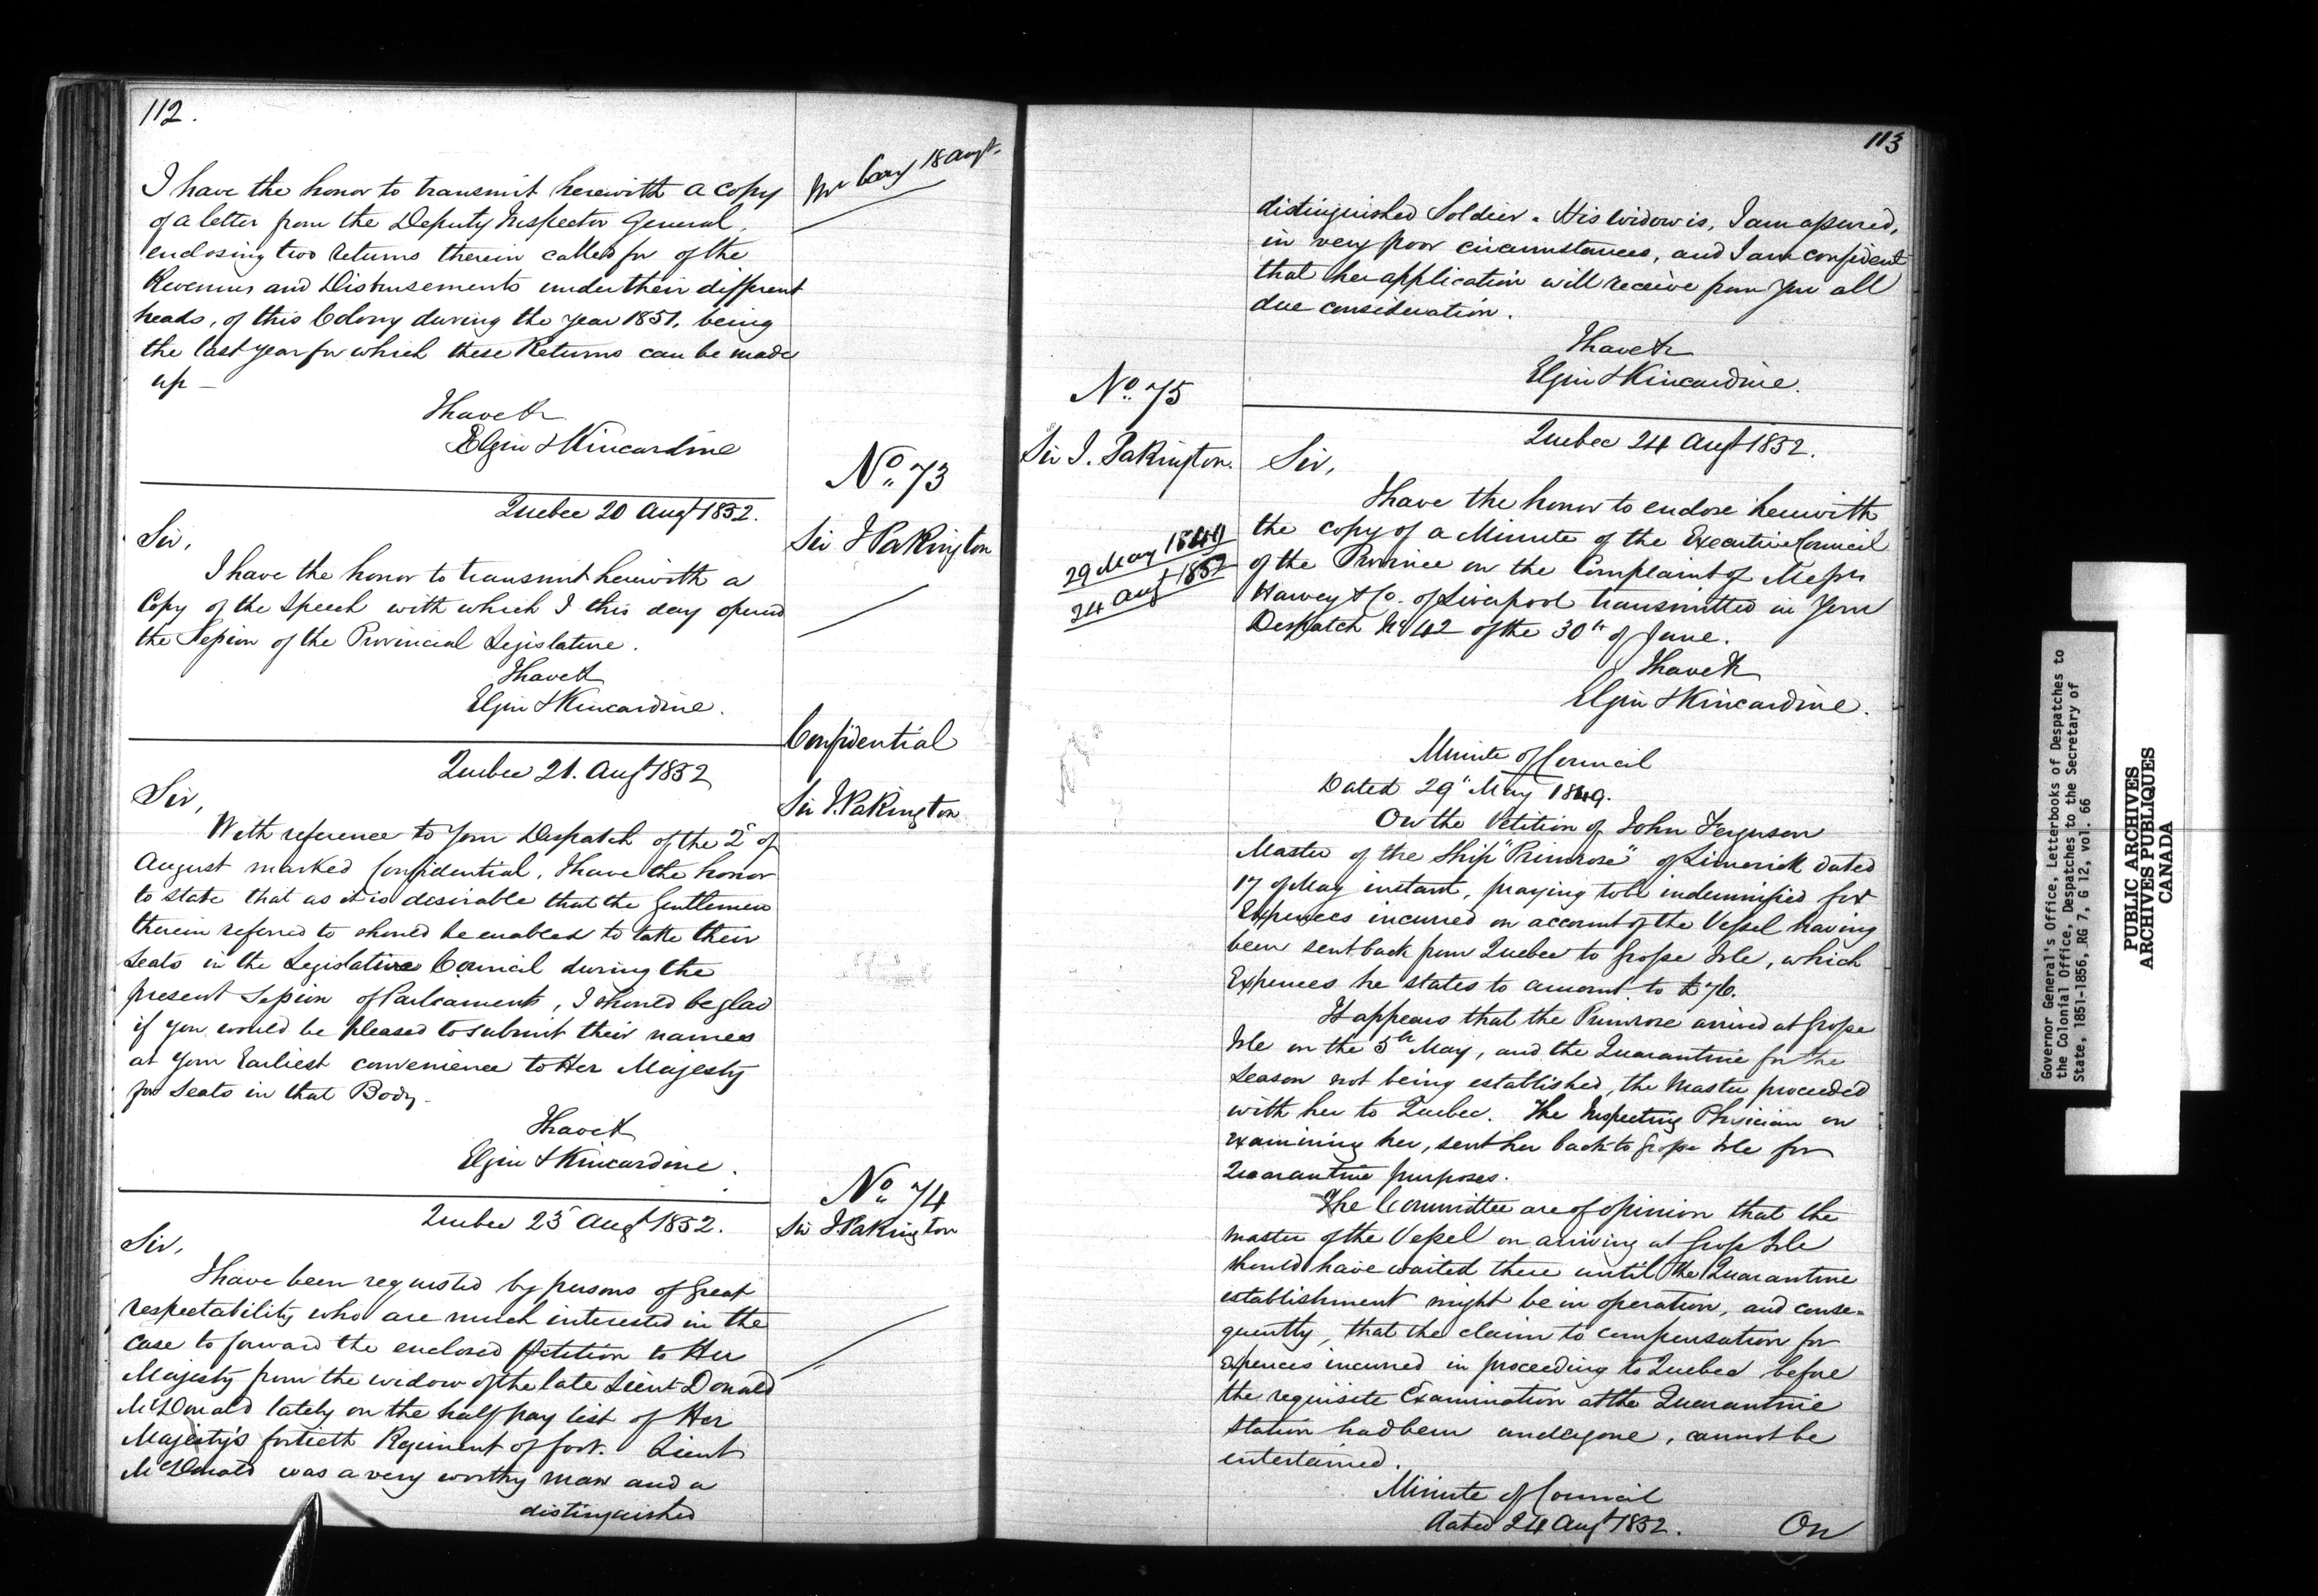 112.
Mr Cary 18 Augt.
I have the honor to transmit herewith a copy
of a letter from the Deputy Inspector General,
enclosing two returns therein called for of the
Revenues and Disbursements under their different
heads, of this Colony during the year 1851, being
the last year for which these Returns can be made
up —
I have &c
Elgin & Kincardine
No. 73
Sir J Pakington
Quebec 20 Augt 1852.
Sir,
I have the honor to transmit herewith a
Copy of the Speech with which I this day opened
the Session of the Provincial Legislature.
I have &c
Elgin & Kincardine.
Confidential
Sir J. Pakington
Quebec 21. Augt 1852
Sir,
With reference to your Despatch of the 2d of
August marked Confidential, I have the honor
to state that as it is desirable that the Gentlemen
therein referred to should be enabled to take their
Seats in the Legislative Council during the
present Session of Parliament, I should be glad
if you would be pleased to submit their names
at your Earliest convenience to Her Majesty
for Seats in that Body.
I have &c
Elgin & Kincardine.
No. 74
Sir J Pakington
Quebec 23 Augt 1852.
Sir,
I have been requested by persons of great
respectability who are much interested in the
case to forward the enclosed Petition to Her
Majesty from the widow of the late Lieut Donald
McDonald lately on the half pay list of Her
Majesty's fortieth Regiment of foot. Lieut
McDonald was a very worthy man and a
distinguished
113
distinguished Soldier. His widow is, I am assured,
in very poor circumstances, and I am confident
that her application will receive from you all
due consideration.
I have &c
Elgin & Kincardine.
No. 75
Sir J. Pakington.
29 May 1849
24 Augt 1852
Quebec 24 Augt 1852.
Sir,
I have the honor to enclose herewith
the copy of a Minute of the Executive Council
of the Province on the Complaint of Messrs
Harvey & Co. of Liverpool transmitted in your
Despatch No 42 of the 30th of June.
I have &c
Elgin & Kincardine.
Minute of Council
Dated 29th May 1849.
On the Petition of John Ferguson
Master of the Ship "Primrose" of Limerick dated
17 of May instant, praying to be indemnified for
Expences incurred on account of the Vessel having
been sent back from Quebec to Grosse Isle, which
Expences he states to amount to £76.
It appears that the Primrose arrived at Grosse
Isle on the 5th May, and the Quarantine for the
Season not being established, the Master proceeded
with her to Quebec. The Inspecting Physician on
examining her, sent her back to Grosse Isle for
Quarantine purposes.
The Committee are of opinion that the
master of the Vessel on arriving at Grosse Isle
should have waited there until the Quarantine
establishment might be in operation, and conse-
quently, that the claim to compensation for
expences incurred in proceeding to Quebec before
the requisite Examination at the Quarantine
Station had been undergone, cannot be
entertained.
Minute of Council
dated 24 Augt 1852.
On
Governor General's Office, Letterbooks of Despatches to
the Colonial Office, Despatches to the Secretary of
State, 1851-1856, RG 7, G 12, vol. 66
PUBLIC ARCHIVES
ARCHIVES PUBLIQUES
CANADA